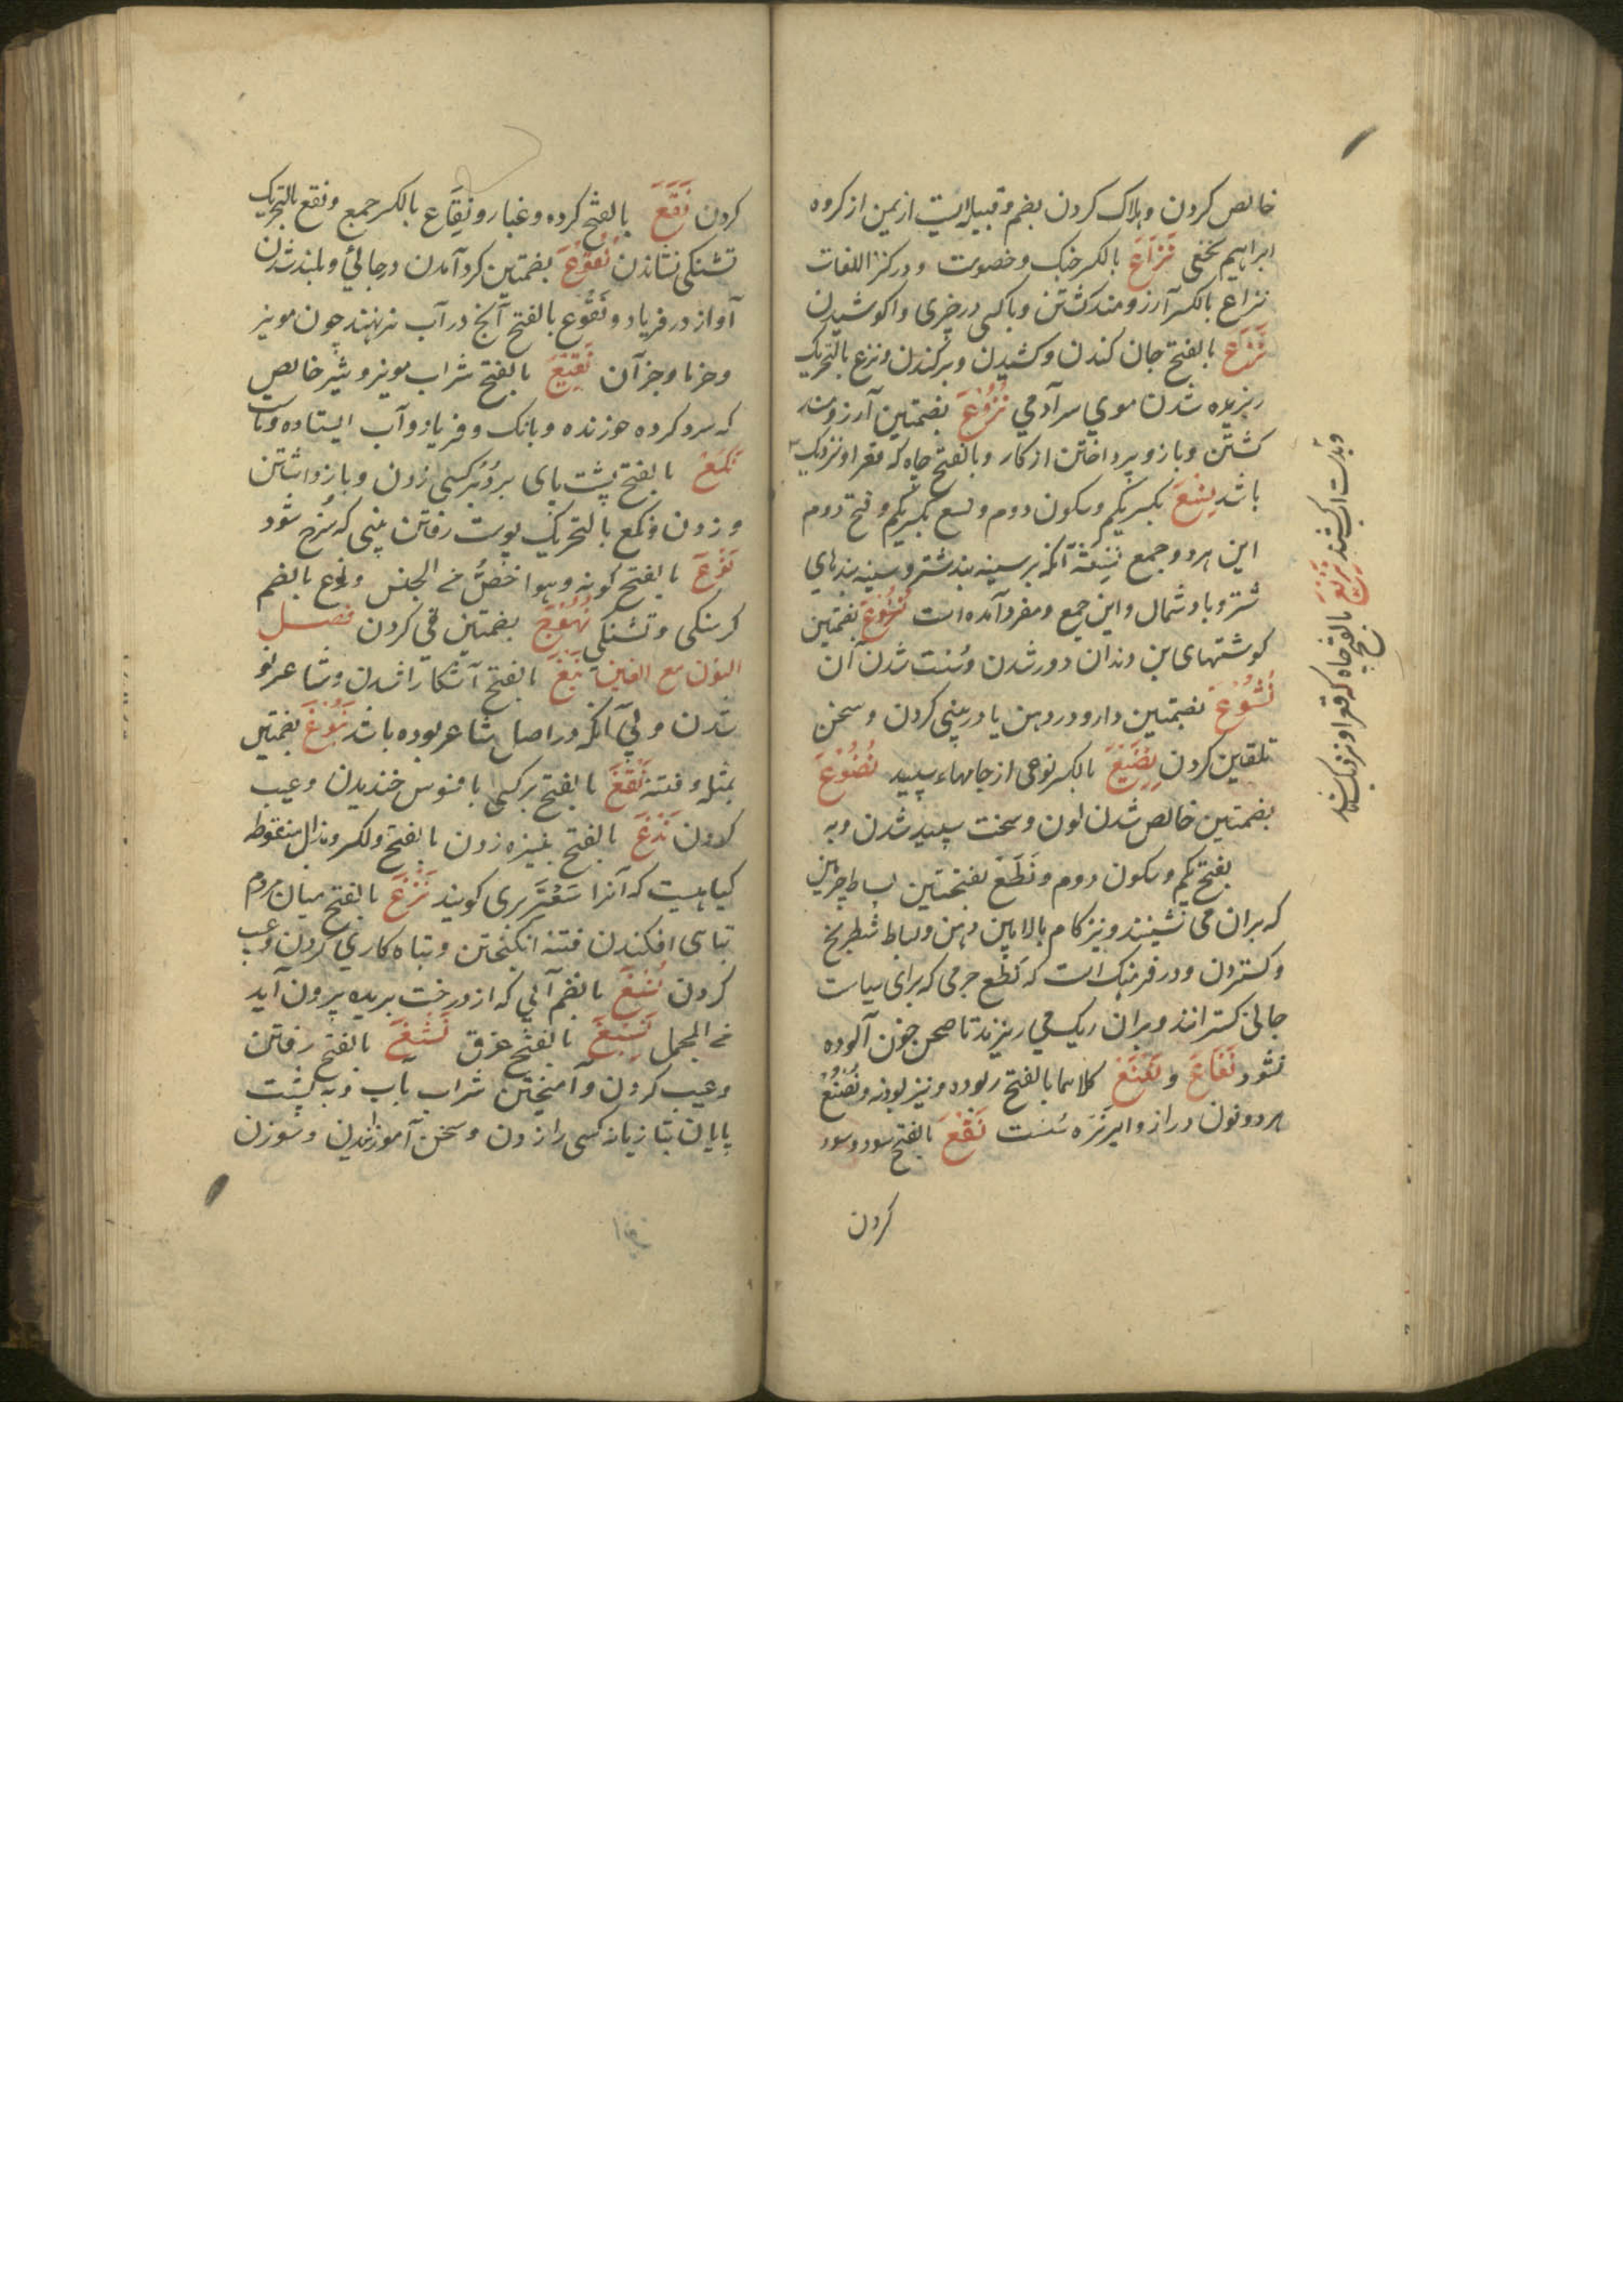 خالص کردن و هلاک کردن بضم و قبیله ایست از یمن از کروه
ابراهیم نخعی نَزَاعَ بالکسر جنک و خصومت و در کنز اللغات
نزاع بالکسر آرزومند کشتن و با کسی در چیزی واکوشیدن
نَزَعَ بالفتح جان کندن و کشیدن و برکندن و نزع بالتحریک
ریزیده شدن موی سر آدمی نُزُوْعَ بضمتین آرزومند
کشتن و باز و پرداختن از کار و بالفتح چاه که قعر او نزدیک
باشد نِسْعَ بکسر یکم و سکون دوم و نسع بکسر یکم و فتح دوم
این هر دو جمع نِسْعَة آنکه بر سینه بند شتر و سینه بندهای
شتر و باد شمال و این جمع و مفرد آمده است نُسُوْعَ بضمتین
کوشتهای بن دندان دور شدن و سُست شدن آن
نُشُوْعَ بضمتین دارو در دهن یا در بینی کردن و سخن
تلقین کردن نِصْعَ بالکسر نوعی از جامهاء سپید نُصُوْعَ
بضمتین خالص شدن لون و سخت سپید شدن و به
بفتح یکم و سکون دوم و نَطَع بفتحتین بساط چرمین
که بران می نشینند و نیز کام بالا بین دهن و بساط شطرنج
و کستردن و در فرهنک است که نَطَع چرمی که برای سیاست
جائی کسترانند و بران ریک می ریزند تا صحن بخون آلوده
نشود نَعْنَاعَ و نَعْنَعْ کلاهما بالفتح ربوده و نیز پودنه و نُعْنُعْ
هر دو نون دراز و ایر نَرَه سُست نَفْعَ بالفتح سود و سود
کردن
نَزِیْعَ بالفتح چاه که قعر او نزدیک باشد
کردن نَقْعَ بالفتح کرده و غبار و نِقَاع بالکسر جمع و نقع بالتحریک
تشنکی نشاندن نُقُوْعَ بضمتین کرد آمدن در جائی و بلند شدن
آواز در فریاد و نَقُوْع بالفتح آنچ در آب نهند چون مویز
و خرما و جز آن نَقِیْعَ بالفتح شراب مویز و شیر خالص
که سرد کرده خورنده و بانک و فریاد و آب ایستاده
نَکْعْ بالفتح پشت پای بر دُبر کسی زدن و باز داشتن
و زدن و نکع بالتحریک پوست رفتن بینی که سُرخ شود
نَوْعَ بالفتح کونه و هو اخصُّ من الجنس و نُوع بالضم
کرسنکی و تشنکی نُهُوْعَ بضمتین قی کردن فصل
النون مع الغین نَبْغَ بالفتح آشکارا شدن و شاعر نو
شدن ولی آنکه در اصل شاعر بوده باشد نُبُوْغَ بضمتین
بمثله و فتنه نَتْغَ بالفتح بر کسی بافسوس خندیدن و عیب
کردن نَدْغَ بالفتح بنیزه زدن بالفتح و لکسر و بذال منقوطه
کیاهیست که آنرا سَعْتَر بری کویند نَزْغَ بالفتح میان مردم
تباهی افکندن فتنه انکیختن و تباه کاری کردن و عیب
کردن نُسْغَ بالضم آبی که از درخت بریده بیرون آید
فی المجمل نَسِیْغَ بالفتح عرق نَسْغَ بالفتح رفتن
و عیب کردن و آمیختن شراب بآب و به پشت
پایان بتازیانه کسی را زدن و سخن آموزانیدن و سوزن